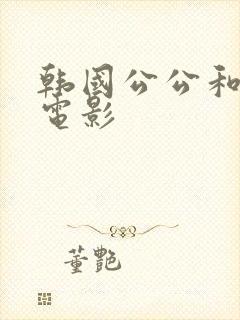 韩國公公和
電影
董艷